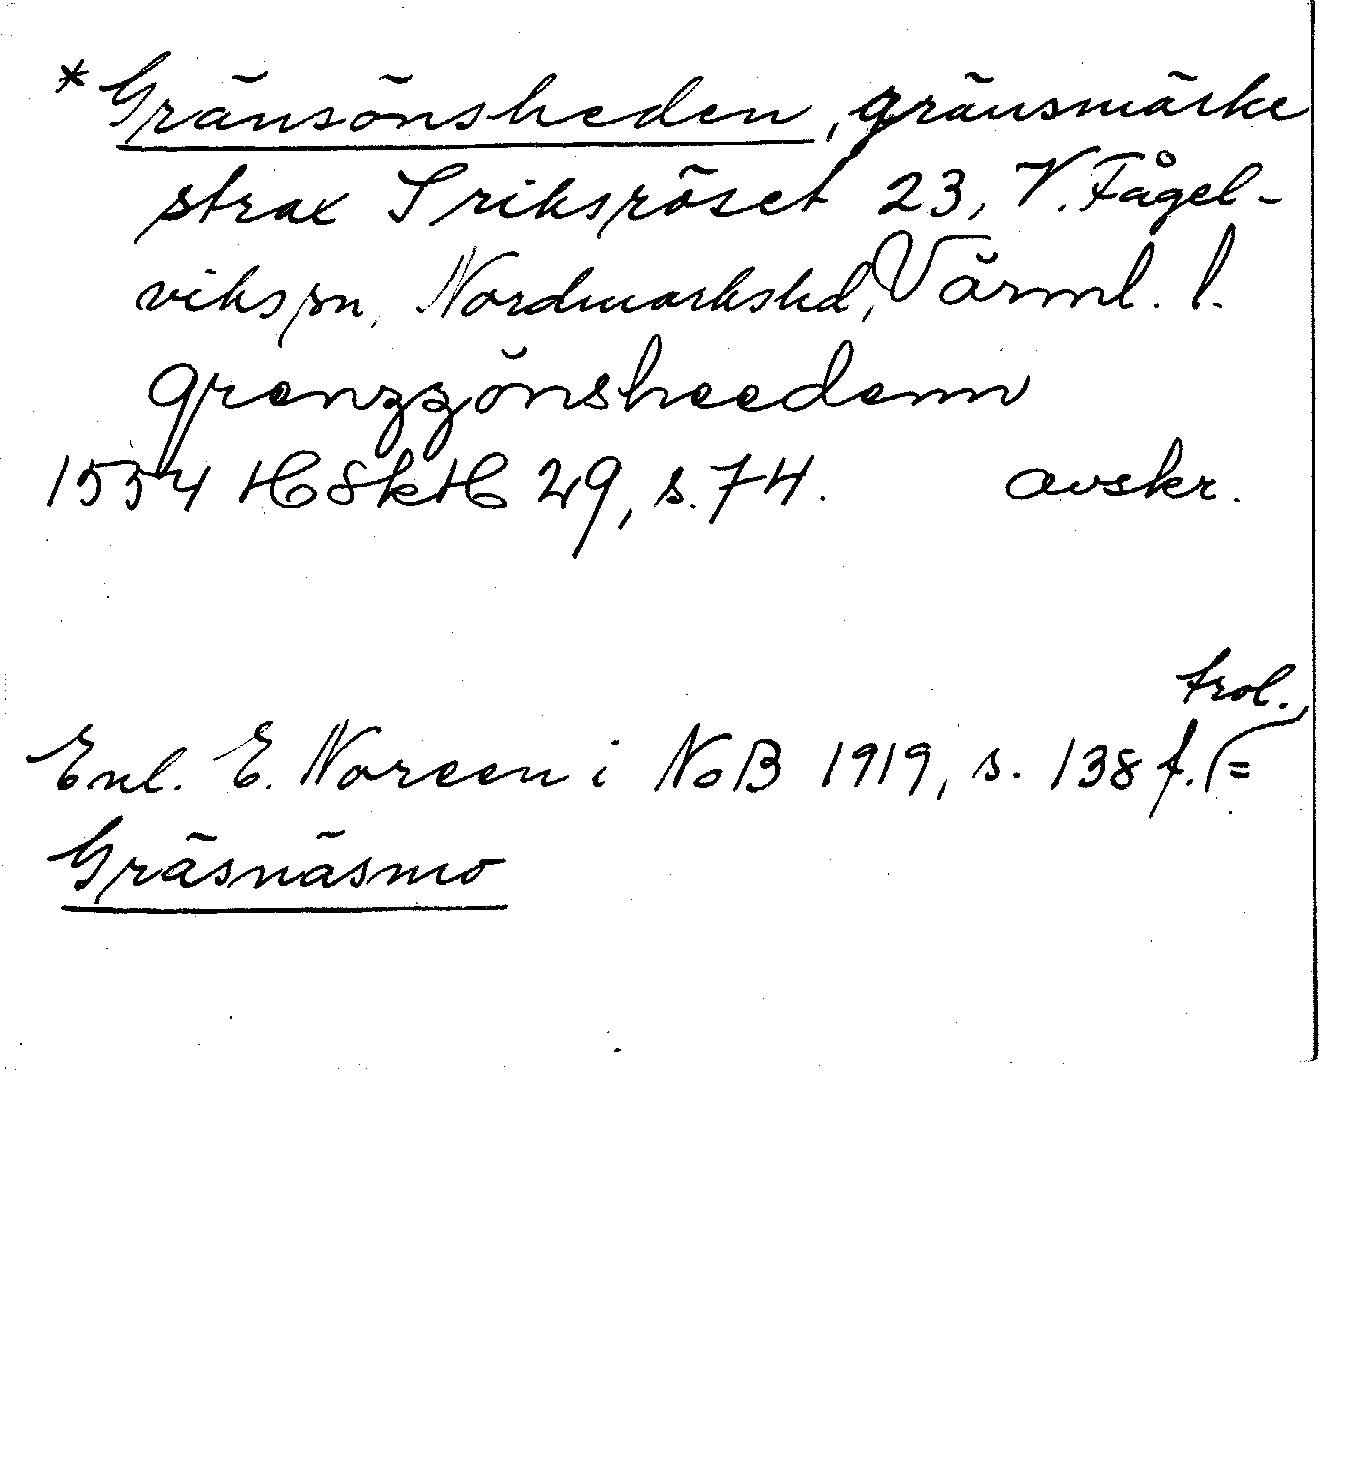 *Gränsönsheden, gränsmärke
strax S riksröset 23, V. Fågel-
viks sn, Nordmarks hd, Värml. l.
grenzzönsheedenn
1554 HSkH 29, s. 74. avskr.
Enl. E. Noreen i NoB 1919, s. 138 f. trol. =
Gräsnäsmo